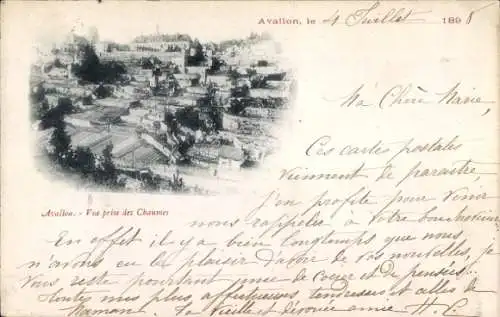 Avallon, le 4 Juillet 1898
Ma Chère Marie,
Ces cartes postales
viennent de paraître,
j'en profite pour venir
nous rappeler à votre bon souvenir
En effet il y a bien longtemps que nous
n'avons eu le plaisir d'avoir de vos nouvelles, je
vous reste pourtant unie de coeur et de pensées.
Toutes mes plus affectueuses tendresses et celles de
Maman. Ta vieille et dévouée amie H. C.
Avallon. - Vue prise des Chaumes